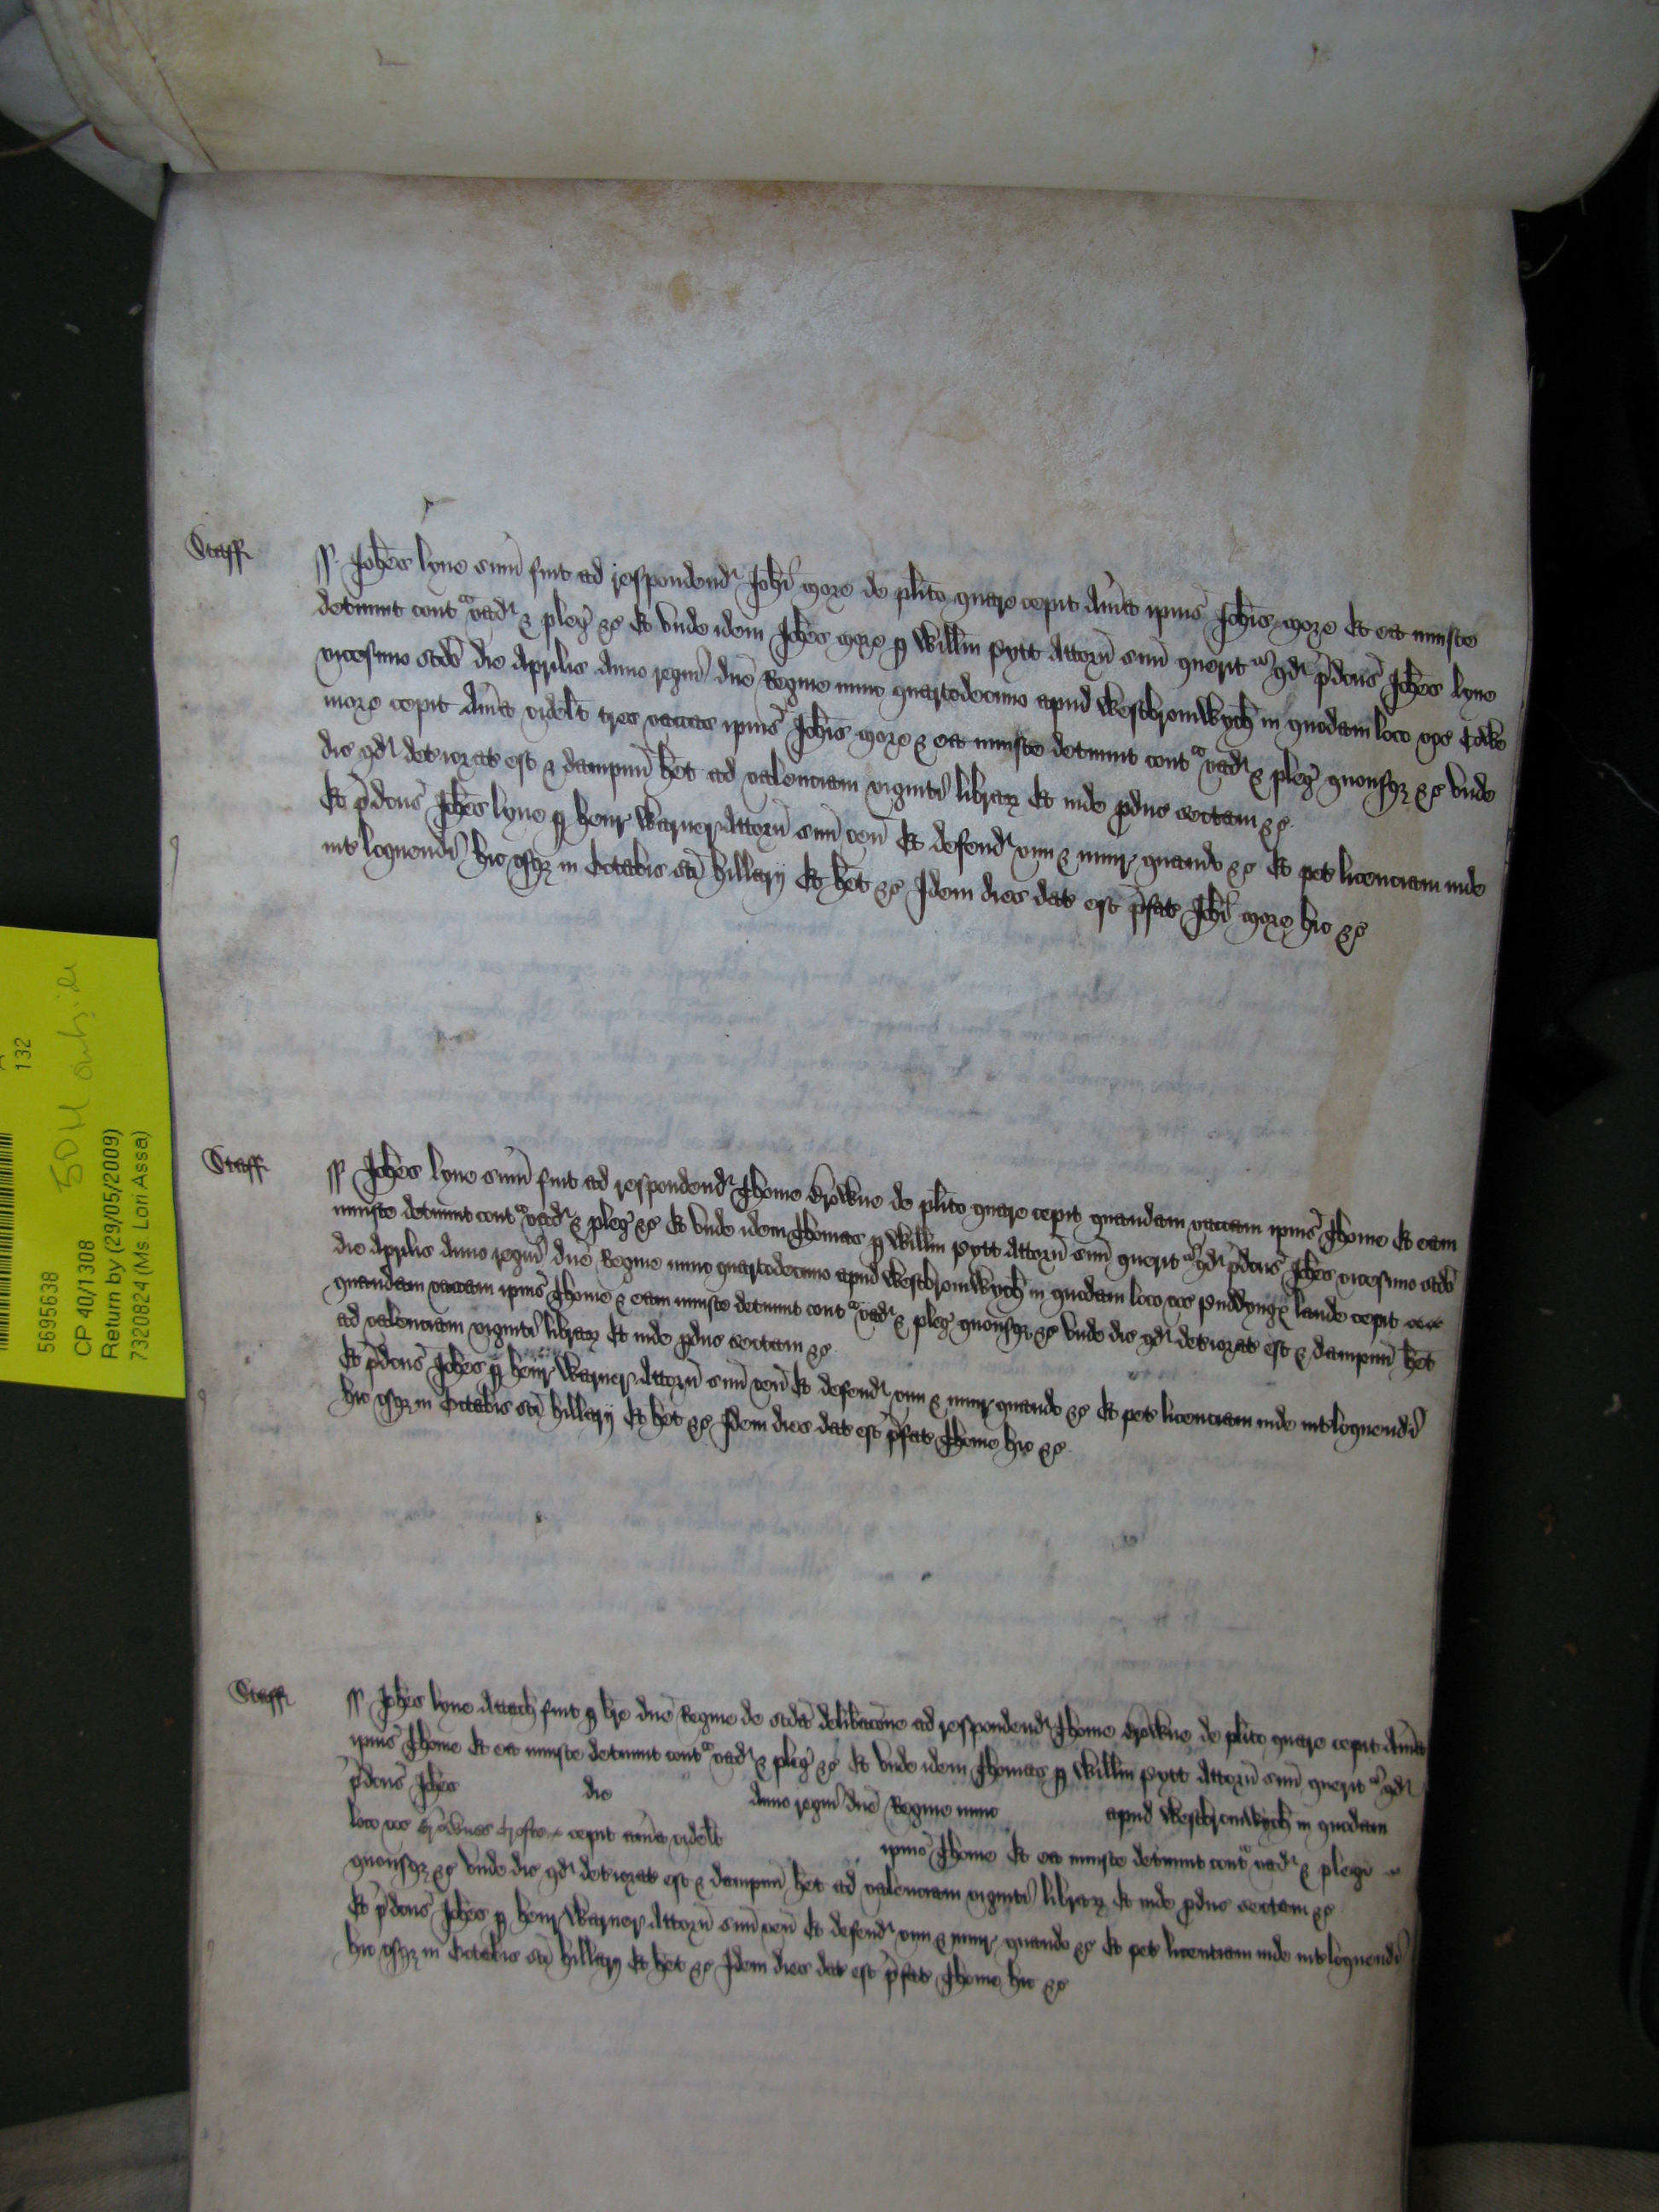 Staff
ss Johes lyne sum fuit ad respondend Johi More de plito quare cepit avia ipius Johis More Et ea iniuste
detinuit cont vad & pleg &c Et unde idem Johes More p Willm Pytt Attorn suu querit qd pdcus Johes lyne
vicesimo scdo die Aprilis Anno regni dne Regine nunc quartodecimo apud Westbromwych in quodam loco voc
more cepit Avia videlt tres vaccas ipius Johis More & ea iniuste detinuit cont vad & pleg quousq &c Unde
dic qd detiorat est & dampnu het ad valenciam viginti librar Et inde pduc sectam &c
Et pdcus Johes lyne p Henr Warner Attorn suu ven Et defend vim & iniur quando &c Et pet licenciam inde
intloquendi hic usq in Octabis sci hillarij Et het &c Idem dies dat est pfat Johi More hic &c
Staff
ss Johes lyne sum fuit ad respondend Thome Browne de plito quare cepit quandam vaccam ipius Thome Et eam
iniuste detinuit cont vad & pleg &c Et unde idem Thomas p Willm Pytt Attorn suu querit qd pdcus Johes vicesimo scdo
die Aprilis Anno regni dne Regine nunc quartodecimo apud Westbromwych in quodam loco voc Puddyngs lande cepit
quandam vaccam ipius Thome & eam iniuste detinuit cont vad & pleg quousq &c Unde dic qd detiorat est & dampnu het
ad valenciam viginti librar Et inde pduc sectam &c
Et pdcus Johes p Henr Warner Attorn suu ven Et defend vim & iniur quando &c Et pet licenciam inde intloquendi
hic usq in Octabis sci hillarij Et het &c Idem dies dat est pfat Thome hic &c
Staff
ss Johes lyne Attach fuit p bre dne Regine de scda delibacone ad respondend Thome Browne de plito quare cepit Avia
ipius Thome Et ea iniuste detinuit cont vad & pleg &c Et unde idem Thomas p Willm Pytt Attorn suu querit qd
pdcus Johes die Anno regni dne Regine nunc apud Westbromwych in quodam
loco voc Brownes Crofte cepit avia videlt ipius Thome Et ea iniuste detinuit cont vad & pleg
quousq &c Unde dic qd detiorat est & dampnu het ad valenciam viginti librar Et inde pduc sectam &c
Et pdcus Johes p Henr Warner Attorn suu ven Et defend vim & iniur quando &c Et pet licenciam inde intloquendi
hic usq in Octabis sci hillarij Et het &c Idem dies dat est pfat Thome hic &c
132
5695638
CP 40/1308
Return by (29/05/2009)
7320824 (Ms. Lori Assa)